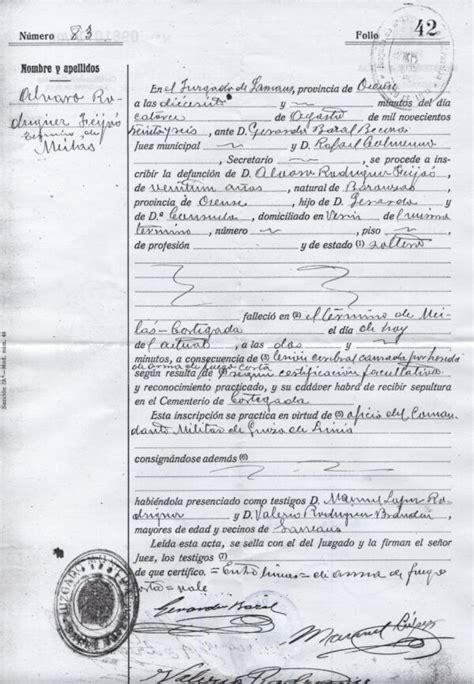 Número 83
Folio 42
Nombre y apellidos
Alvaro Ro-
driguez Feijóo
termino de
Meilas
En el Juzgado de Sarreaus, provincia de Orense
a las dieciseis y minutos del día
catorce de Agosto de mil novecientos
treinta y seis, ante D. Gerardo Bazal
Juez municipal y D. Rafael Colmenero
, Secretario, se procede a ins-
cribir la defunción de D. Alvaro Rodriguez Feijóo
de veintiun años, natural de
provincia de Orense, hijo de D. Gerardo
y de D.ª Consuelo, domiciliado en Verin el mismo
término, número, piso
de profesión y de estado (1) soltero
falleció en (2) el término de Mei-
las-Cortegada el día de hoy
del actual, a las dos y
minutos, a consecuencia de (3) lesion cerebral causada por herida
de arma de fuego corta
según resulta de certificación facultativa
y reconocimiento practicado, y su cadáver habrá de recibir sepultura
en el Cementerio de Cortegada
Esta inscripción se practica en virtud de (5) oficio del Coman-
dante Militar de Ginzo de Limia
consignándose además (6)
habiéndola presenciado como testigos D. Manuel Lopez Ro-
driguez y D. Valerio Rodriguez
mayores de edad y vecinos de Sarreaus
Leída esta acta, se sella con el del Juzgado y la firman el señor
Juez, los testigos
de que certifico. = Entre lineas = de arma de fuego
corta = vale
Gerardo Bazal
Manuel López
Valerio Rodriguez